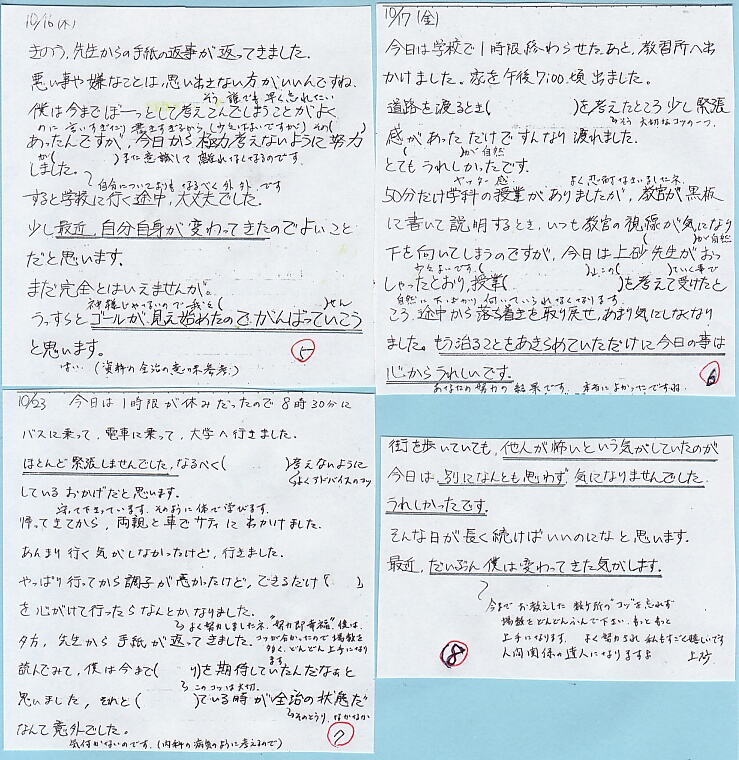 10/16(木)
きのう、先生からの手紙の返事が返ってきました。
悪い事や嫌なことは、思い出さない方がいいんですね。
そう、誰でも早く忘れたい
僕は今までぼーっとして考えこんでしまうことがよく
あったんですが、今日から極力考えないように努力
しました。
すると学校に行く途中、大丈夫でした。
少し最近、自分自身が変わってきたのでよいこと
だと思います。
まだ完全とはいえませんが。
神様じゃないので我々( )せん
うっすらとゴールが見え始めたのでがんばっていこう
と思います。
はい。(資料の全治の意味参考)
5
10/17(金)
今日は学校で1時限終わらせたあと、教習所へ出
かけました。家を午後7:00頃出ました。
道路を渡るとき( )を考えたところ少し緊張
そう 大切なコツの一つ
感があっただけですんなり渡れました。
が自然
とてもうれしかったです。
よく忍耐なさいましたネ
50分だけ学科の授業がありましたが、教官が黒板
に書いて説明するとき、いつも教官の視線が気になり
下を向いてしまうのですが、今日は上砂先生がおっ
しゃったとおり、授業( )を考えて受けたと
自然に下ばかり向いていられなくなります
ころ、途中から落ち着きを取り戻せ、あまり気にしなくなり
ました。もう治ることをあきらめていただけに今日の事は
心からうれしいです。
あなたの努力の結果です。本当によかったですね。
6
10/23 今日は1時限が休みだったので8時30分に
バスに乗って、電車に乗って、大学へ行きました。
ほとんど緊張しませんでした。なるべく( )考えないように
よくアドバイスのコツ
しているおかげだと思います。
守って下さっています。そのように体で学びます。
帰ってきてから、両親と車でサティにおかけました。
あんまり行く気がしなかったけど、行きました。
やっぱり行ってから調子が悪かったけど、できるだけ( )
を心がけて行ったらなんとかなりました。
よく努力しましたネ。"努力即幸福"僕は、
夕方、先生から手紙が返ってきました。
コツが分かったので場数を
多く、どんどん上手になり
ます
読んでみて、僕は今まで( )を期待していたんだなぁと
このコツは大切。
思いました。それと( )ている時が"全治の状態だ"
そのとうり、なかなか
なんて意外でした。
気付かないのです。(内科の病気のように考えるので)
7
街を歩いていても、他人が怖いという気がしていたのが
今日は、別になんとも思わず、気になりませんでした。
うれしかったです。
そんな日が長く続けばいいのになと思います。
最近、だいぶん僕は変わってきた気がします。
今までお教えした数ヶ所の"コツ"を忘れず
場数をどんどんふんで下さい。もっともっと
上手になります。よく努力され私もすごく嬉しいです
人間関係の達人になりますよ 上砂
8